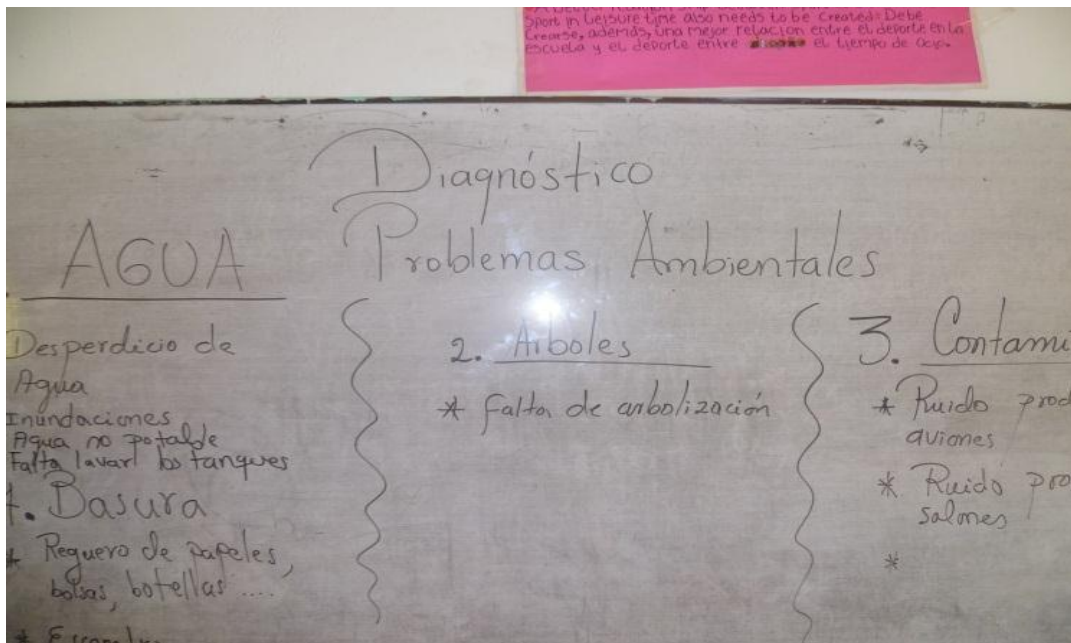 Sport in Leisure time also needs to be Created: Debe
Crearse, además, una mejor relación entre el deporte en la
escuela y el deporte entre el tiempo de Ocio.
Diagnóstico
Problemas Ambientales
AGUA
Desperdicio de
Agua
Inundaciones
Agua no potable
Falta lavar los tanques
. Basura
* Reguero de papeles,
bolsas, botellas ....
2. Arboles
* Falta de arbolización
3. Contami
* Ruido prod
aviones
* Ruido pro
salones
*